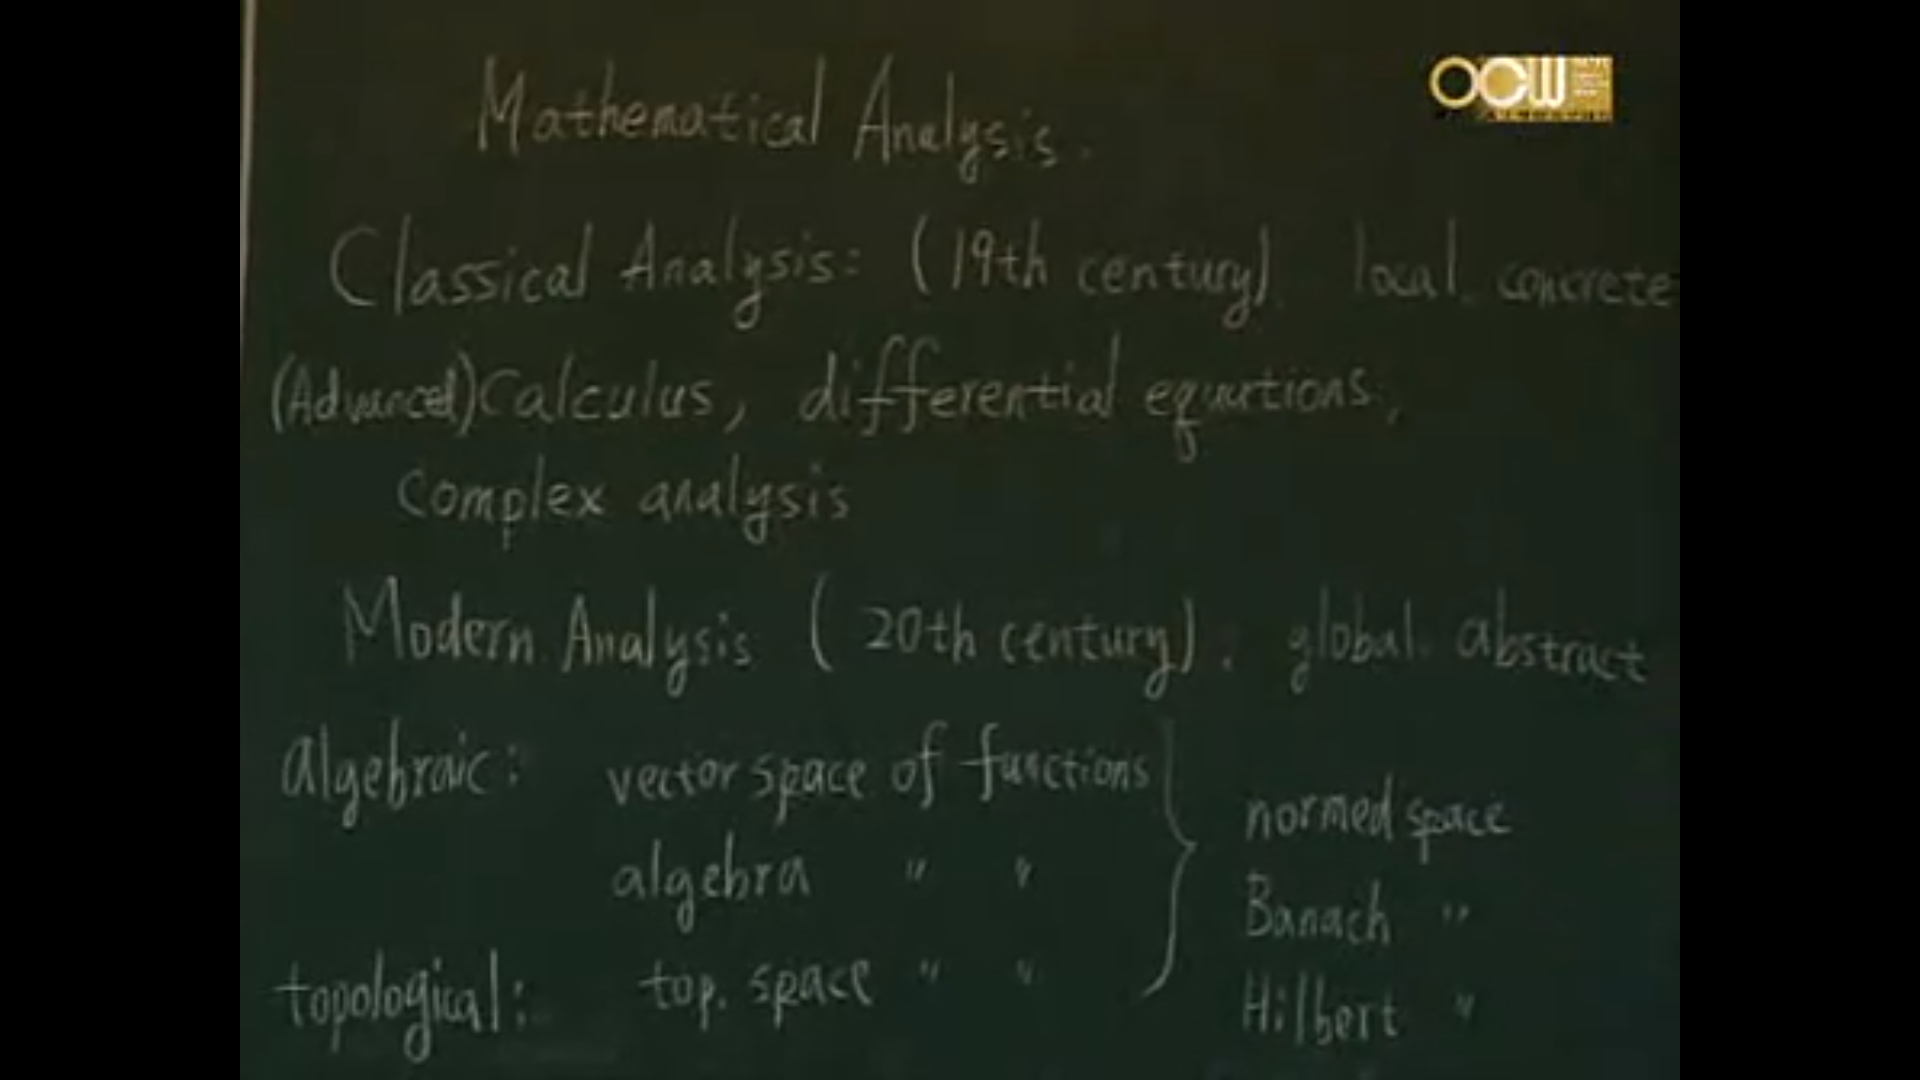 OCW
Mathematical Analysis.
Classical Analysis: (19th century). local. concrete
(Advanced) Calculus, differential equations,
complex analysis
Modern Analysis (20th century). global. abstract
algebraic: vector space of functions
normed space
algebra " "
Banach "
topological: top. space " "
Hilbert "